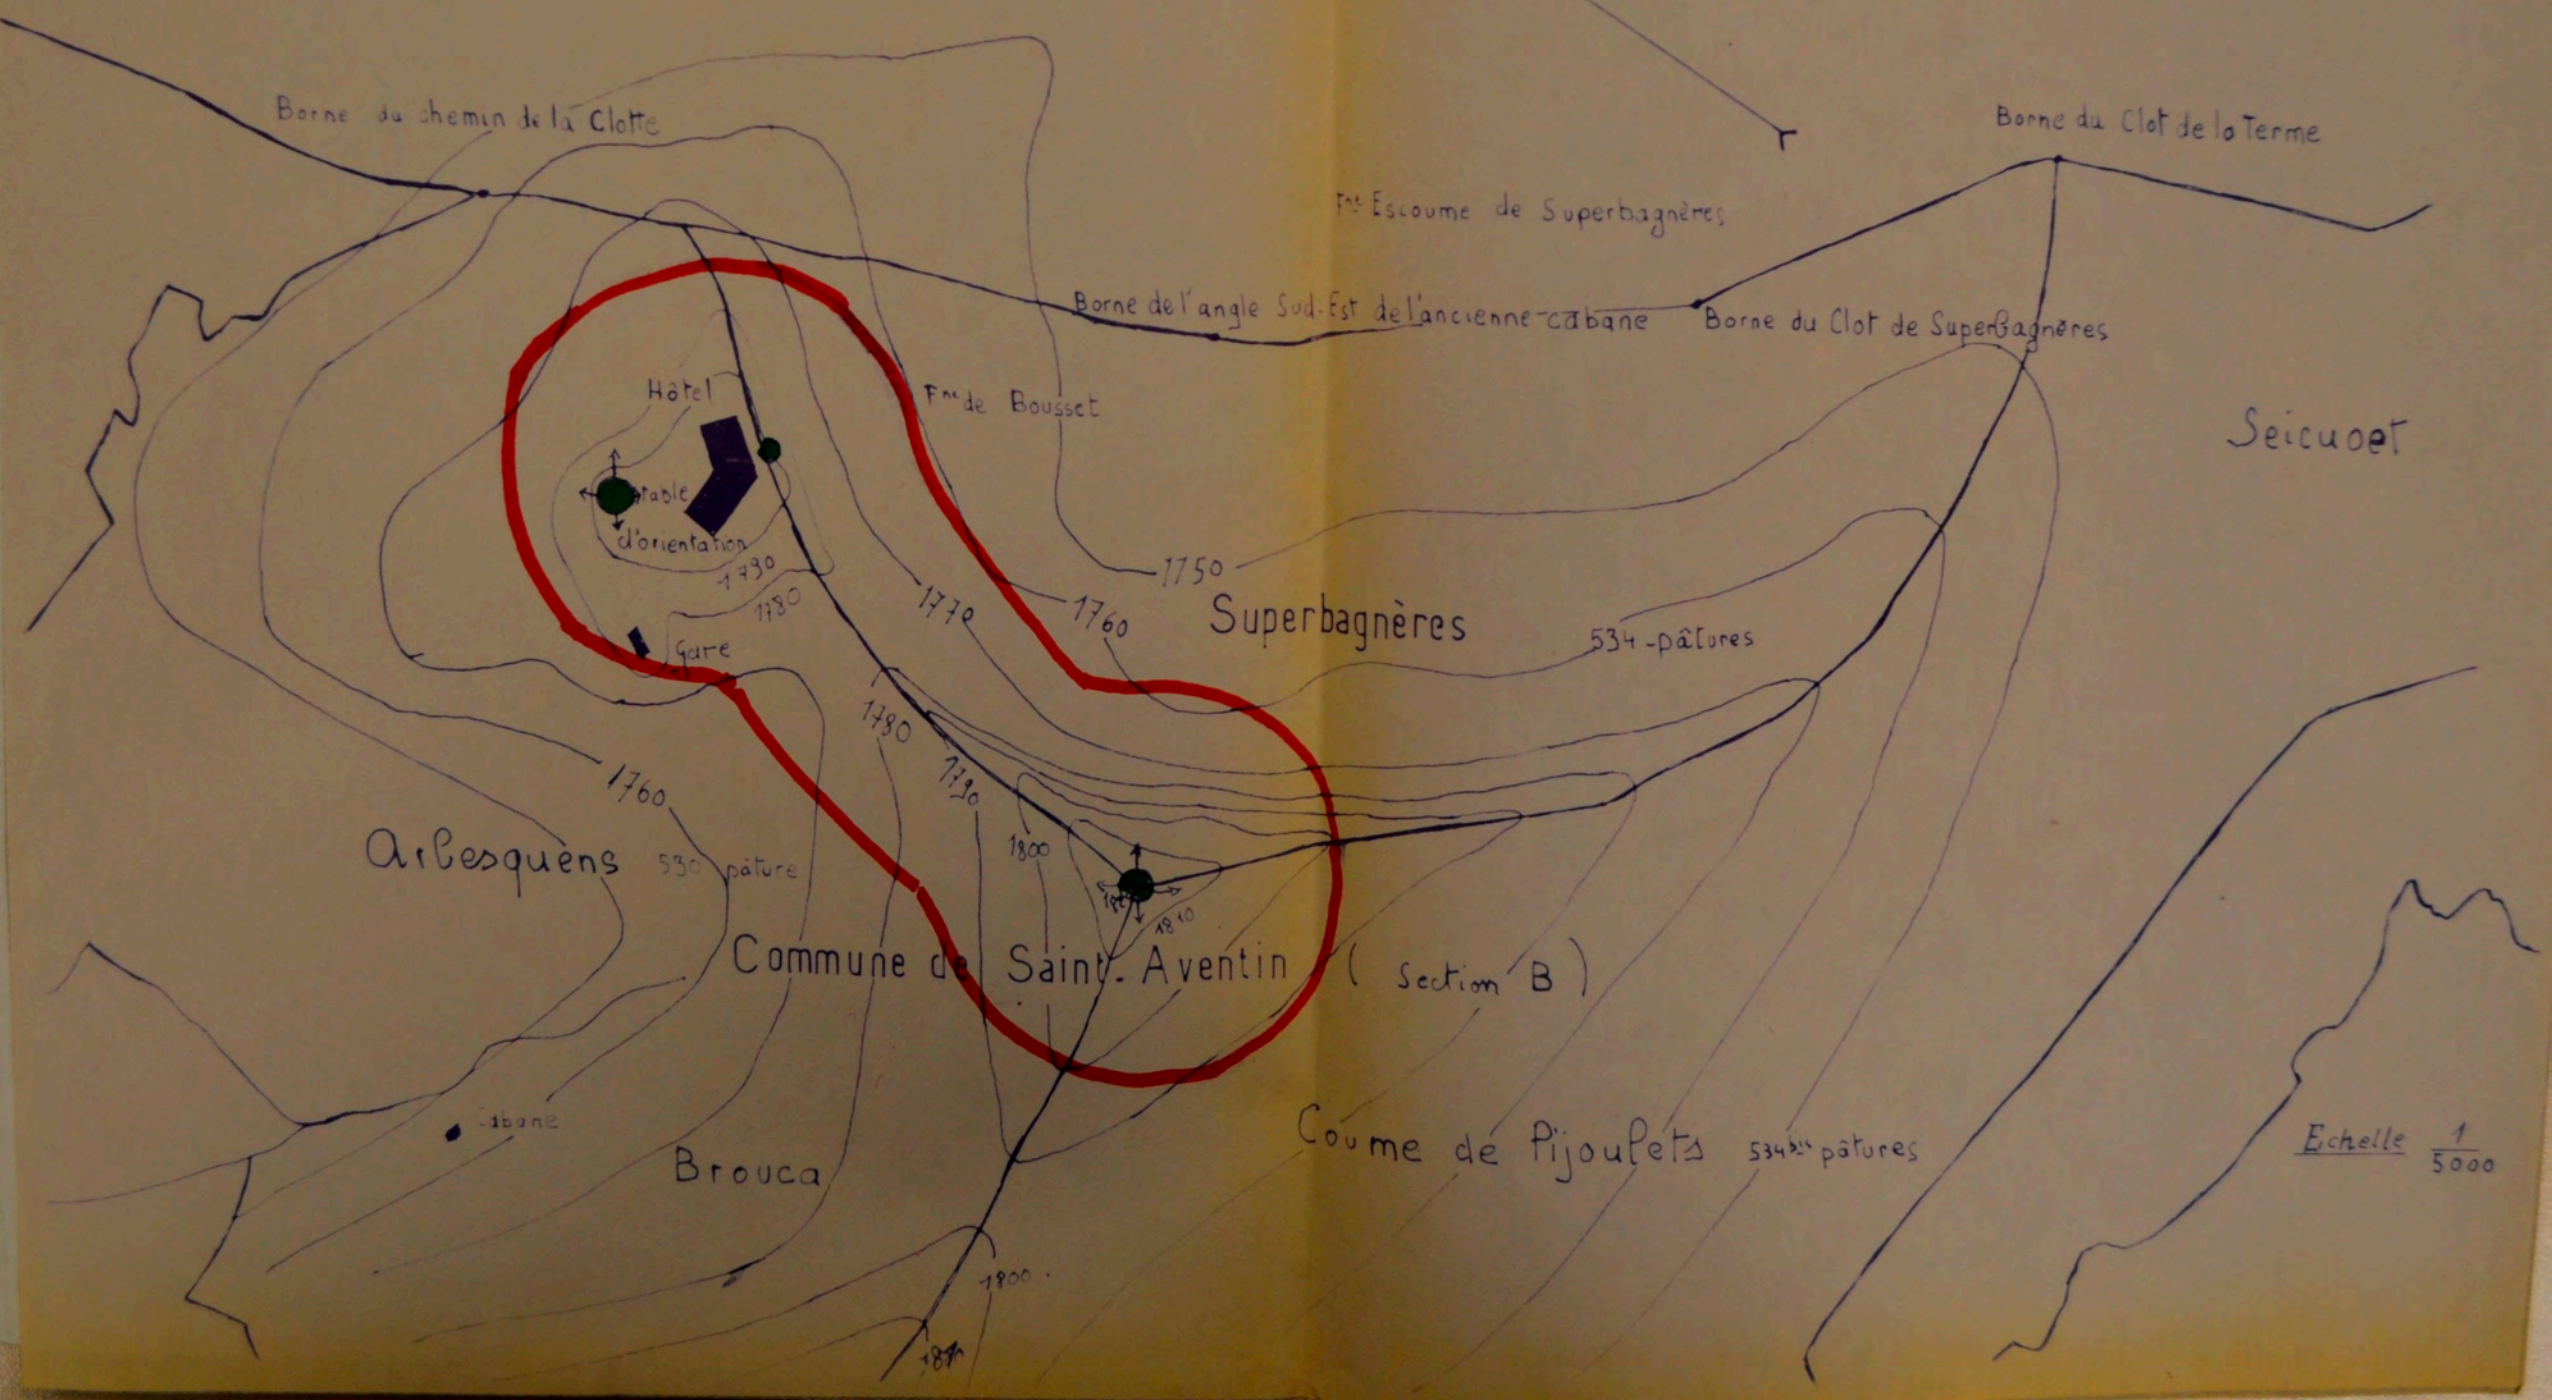 Borne du chemin de la Clotte
Borne du Clot de la Terme
Fne Escoume de Superbagnères
Borne de l'angle Sud-Est de l'ancienne-cabane
Borne du Clot de Superbagnères
Hôtel
Fne de Bousset
Seicuoet
table
d'orientation
1790
1780
1750
1770
1760
Superbagnères
534-pâtures
Gare
1780
1790
1760
1800
Arbesquèns
530 pâture
1810
Commune de Saint-Aventin (Section B)
Cabane
Brouca
Coume de Pijoulets 534bis pâtures
Echelle 1/5000
1800